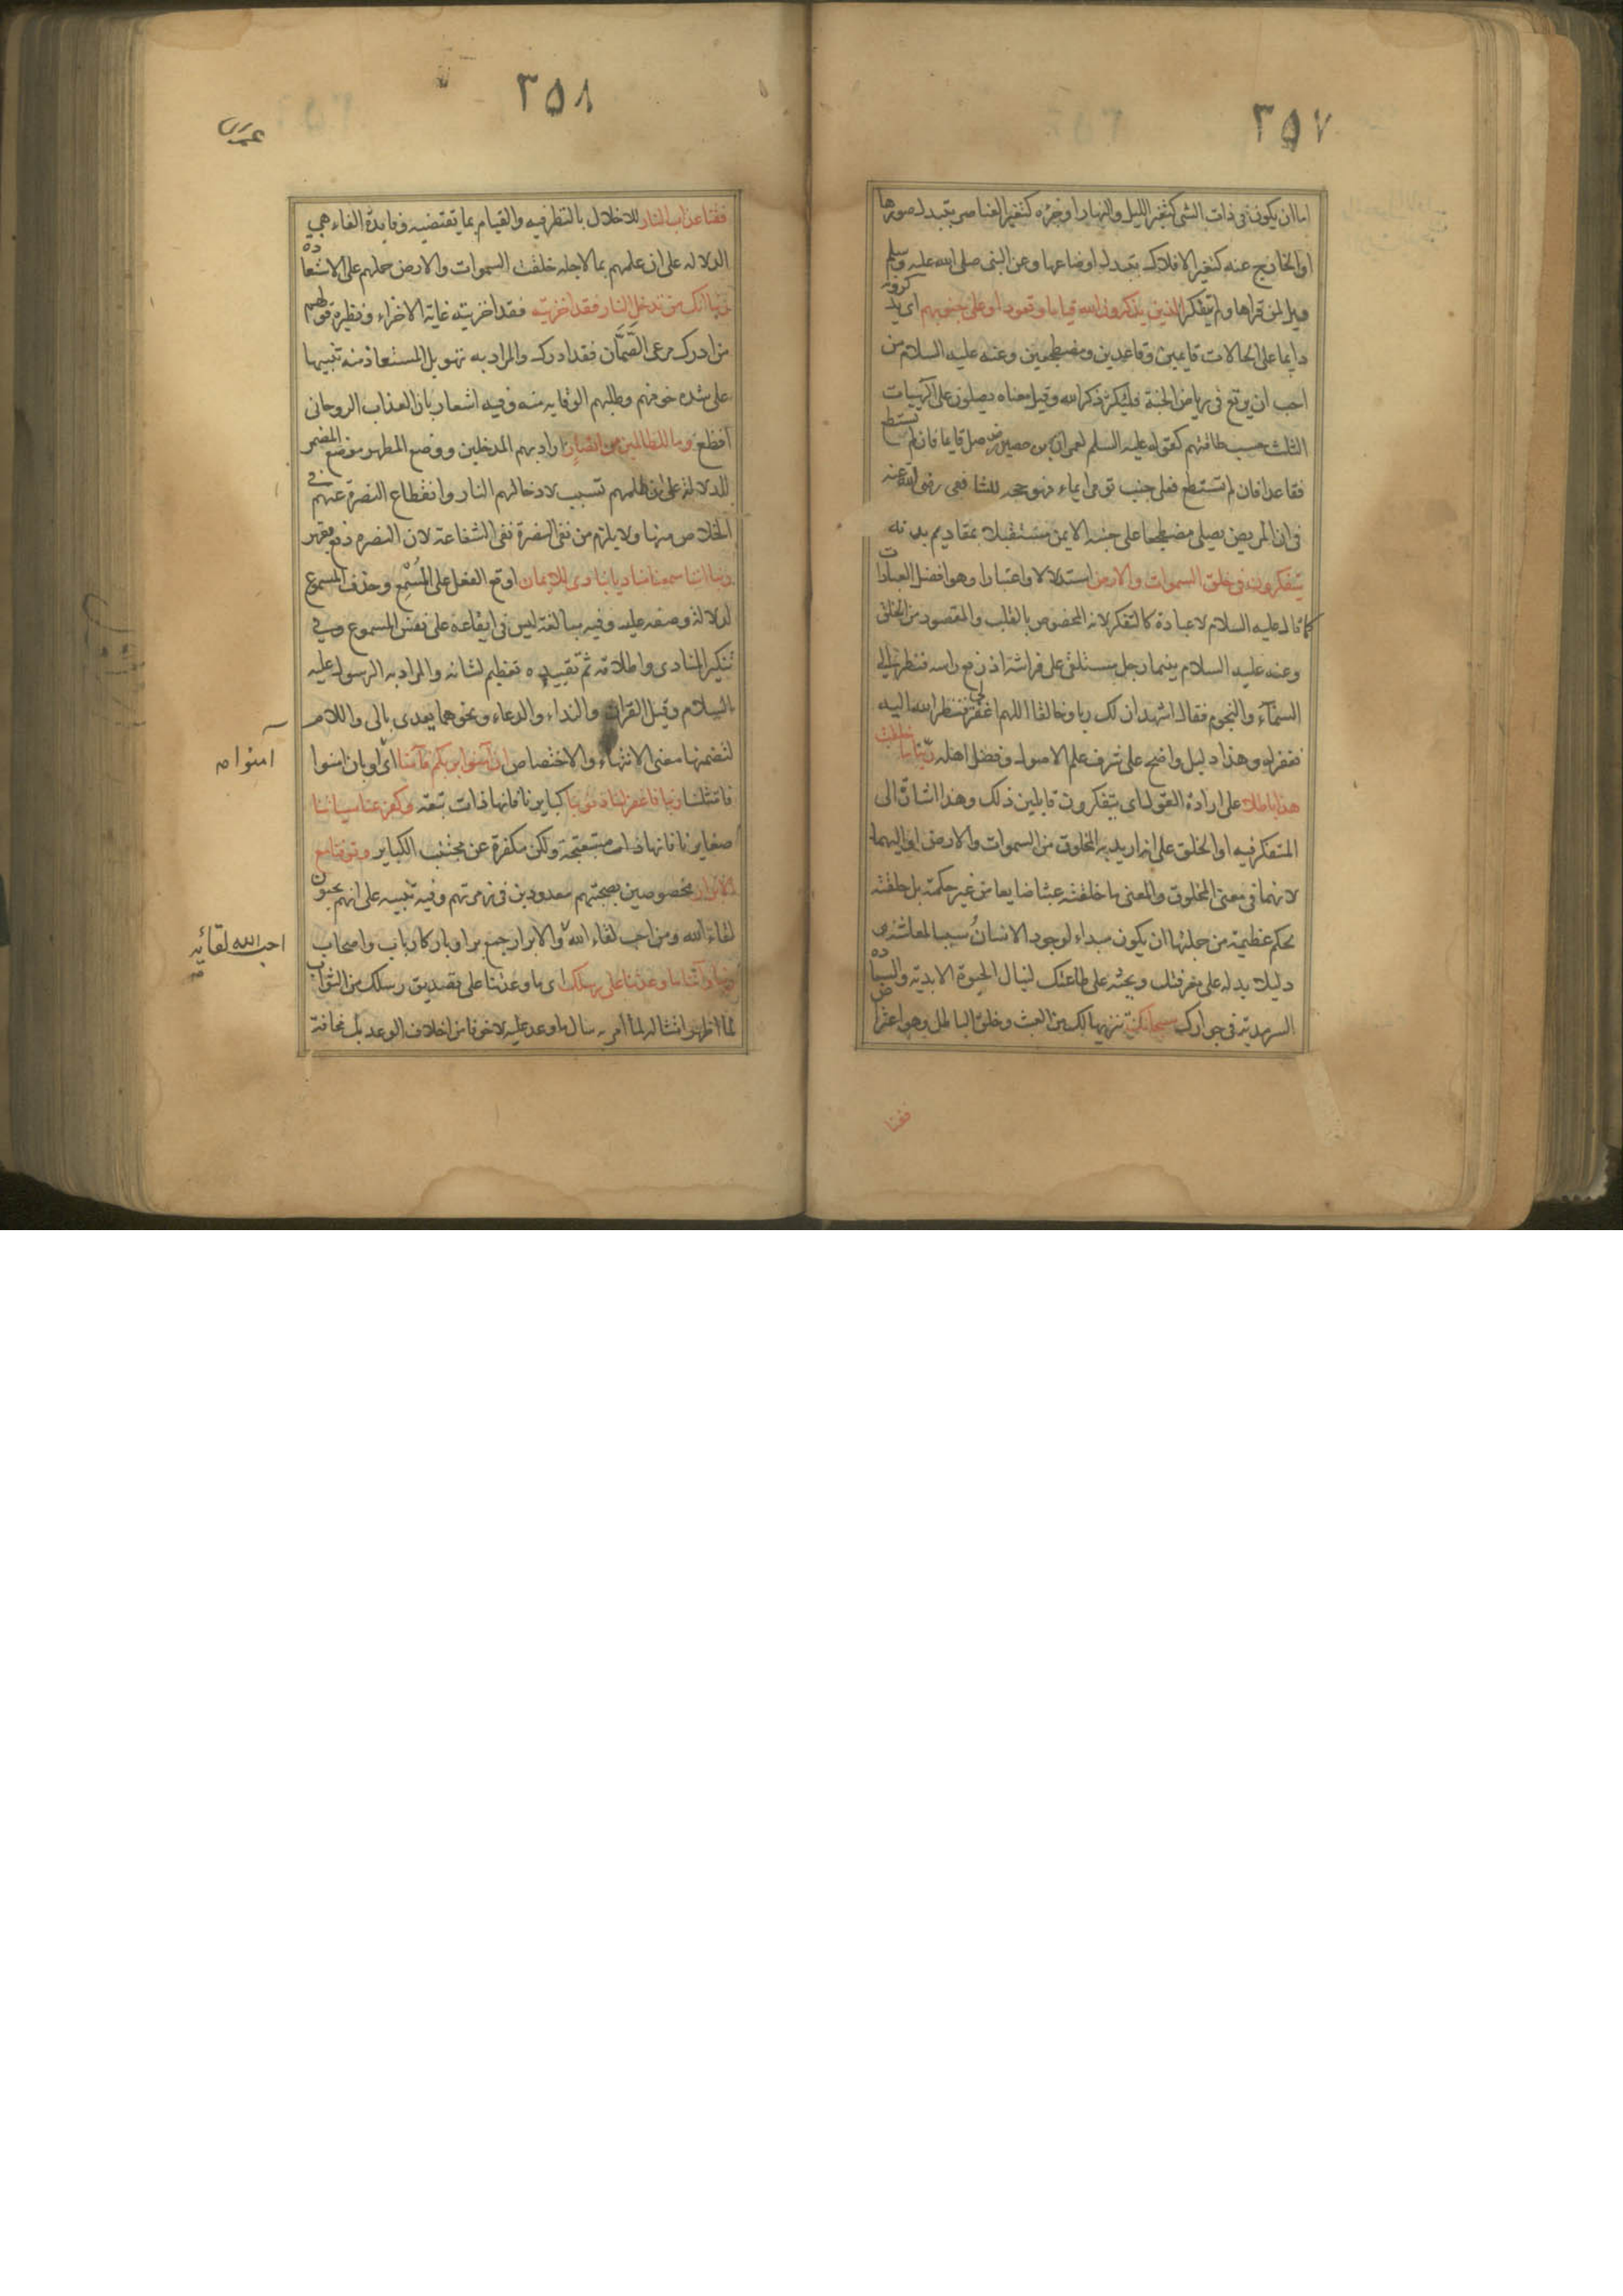 ٣٥٧
اما ان يكون فى ذات الشى كتغير الليل والنهار او جزءه كتغير العناصر بتبدل صورها
او الخارج عنه كتغير الافلاك بتبدل اوضاعها وعن النبى صلى الله عليه وسلم
ويل لمن قراها ولم يتفكر الذين يذكرون الله قياما وقعودا وعلى جنوبهم اى يذكرونه
دايما على الحالات قايمين وقاعدين ومضطجعين وعنه عليه السلام من
احب ان يرتع فى رياض الجنة فليكثر ذكر الله وقيل معناه يصلون على الهيات
الثلث حسب طاقتهم كقوله عليه السلم لعمران بن حصين صل قايما فان لم تستطع
فقاعدا فان لم تستطع فعلى جنب تومى ايماء فهو حجة للشافعى رضى الله عنه
فى ان المريض يصلى مضطجعا على جنبه الايمن مستقبلا بمقاديم بدنه
يتفكرون فى خلق السموات والارض استدلالا واعتبارا وهو افضل العبادات
كما قال عليه السلام لا عبادة كالتفكر لانه المخصوص بالقلب والمقصود من الخلق
وعنه عليه السلام بينما رجل مستلقى على فراشه اذ رفع راسه فنظر الى
السمآء والنجوم فقال اشهد ان لك ربا وخالقا اللهم اغفر لى فنظر الله اليه
فغفر له وهذا دليل واضح على شرف علم الاصول وفضل اهله ربنا ما خلقت
هذا باطلا على ارادة القول اى يتفكرون قايلين ذلك وهذا اشارة الى
المتفكر فيه او الخلق على انه اريد به المخلوق من السموات والارض او اليهما
لانهما فى معنى المخلوق والمعنى ما خلقته عبثا ضايعا من غير حكمة بل خلقته
لحكم عظيمة من جملتها ان يكون مبداء لوجود الانسان وسببا لمعاشه و
دليلا يدله على معرفتك ويحثه على طاعتك لينال الحيوة الابدية والسعادة
السرمدية فى جوارك سبحانك تنزيها لك من العبث وخلق الباطل وهو اعتراض
فقنا
٣٥٨
فقنا عذاب النار للاخلال بالنظر فيه والقيام بما تقتضيه وفايدة الفاء هى
الدلالة على ان علمهم بما لاجله خلقت السموات والارض حملهم على الاستعاذه
ربنا انك من تدخل النار فقد اخزيته فقد اخزيته غاية الاخزاء ونظيره قولهم
من ادرك مرعى الصَّمَّان فقد ادرك والمراد به تهويل المستعاذ منه تنبيها
على شدة خوفهم وطلبهم الوقاية منه وفيه اشعار بان العذاب الروحانى
افظع وما للظالمين من انصار اراد بهم المدخلين ووضع المظهر موضع المضمر
للدلالة على ان ظلمهم تسبب لادخالهم النار وانقطاع النصرة عنهم فى
الخلاص منها ولا يلزم من نفى النصرة نفى الشفاعة لان النصرة دفع بقهر
ربنا اننا سمعنا مناديا ينادى للايمان اوقع الفعل على المُسْمِع وحذف المسموع
لدلالة وصفه عليه وفيه مبالغة ليس فى ايقاعه على نفس المسموع وفى
تنكير المنادى واطلاقه ثم تقييده تعظيم لشانه والمراد به الرسول عليه
السلام وقيل القران والنداء والدعاء ونحوهما يعدى بالى واللام
لتضمنها معنى الانتهاء والاختصاص ان آمنوا بربكم فآمنا اى او بان امنوا
فامتثلنا ربنا فاغفر لنا ذنوبنا كبايرنا فانها ذات تبعة وكفر عنا سياتنا
صغايرنا فانها مستقبحة ولكن مكفرة عن مجتنب الكباير وتوفنا مع
الابرار مخصوصين بصحبتهم معدودين فى زمرتهم وفيه تنبيه على انهم يحبون
لقاء الله ومن احب لقاء الله والابرار جمع بر او بار كارباب واصحاب
ربنا وآتنا ما وعدتنا على رسلك اى ما وعدتنا على تصديق رسلك من الثواب
لما اظهر امتثاله لما امر به سال ما وعد عليه لا خوفا من اخلاف الوعد بل مخافة
آمنوا
احب الله لقائه